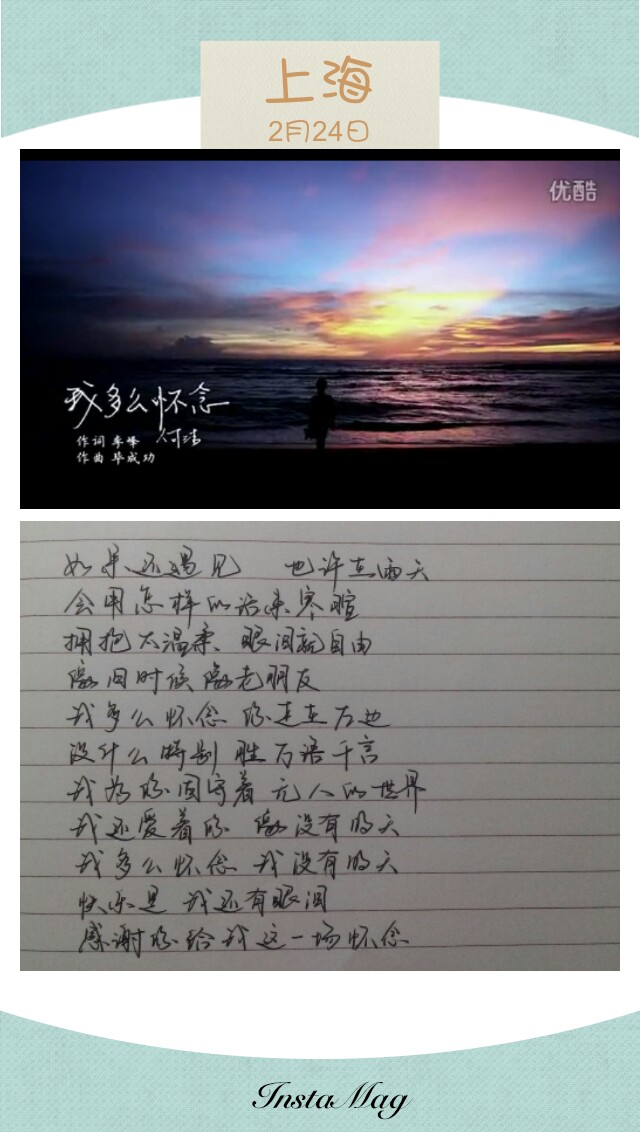 上海
2月24日
优酷
我多么怀念
作词 李峰 何洁
作曲 毕成功
如果还遇见 也许在雨天
会用怎样的话来寒暄
拥抱太温柔 眼泪就自由
像旧时候 像老朋友
我多么怀念 你走在右边
没什么特别 胜万语千言
我为你固守着 无人的世界
我还爱着你 像没有明天
我多么怀念 我没有明天
快乐是 我还有眼泪
感谢你给我这一场怀念
InstaMag